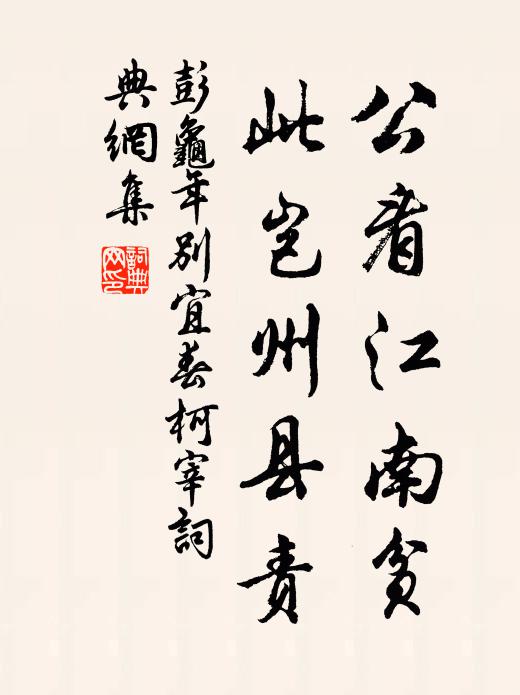 公看江南貧
此岂州县责
彭龜年別宜春柯宰詞
典網集
詞典
网印